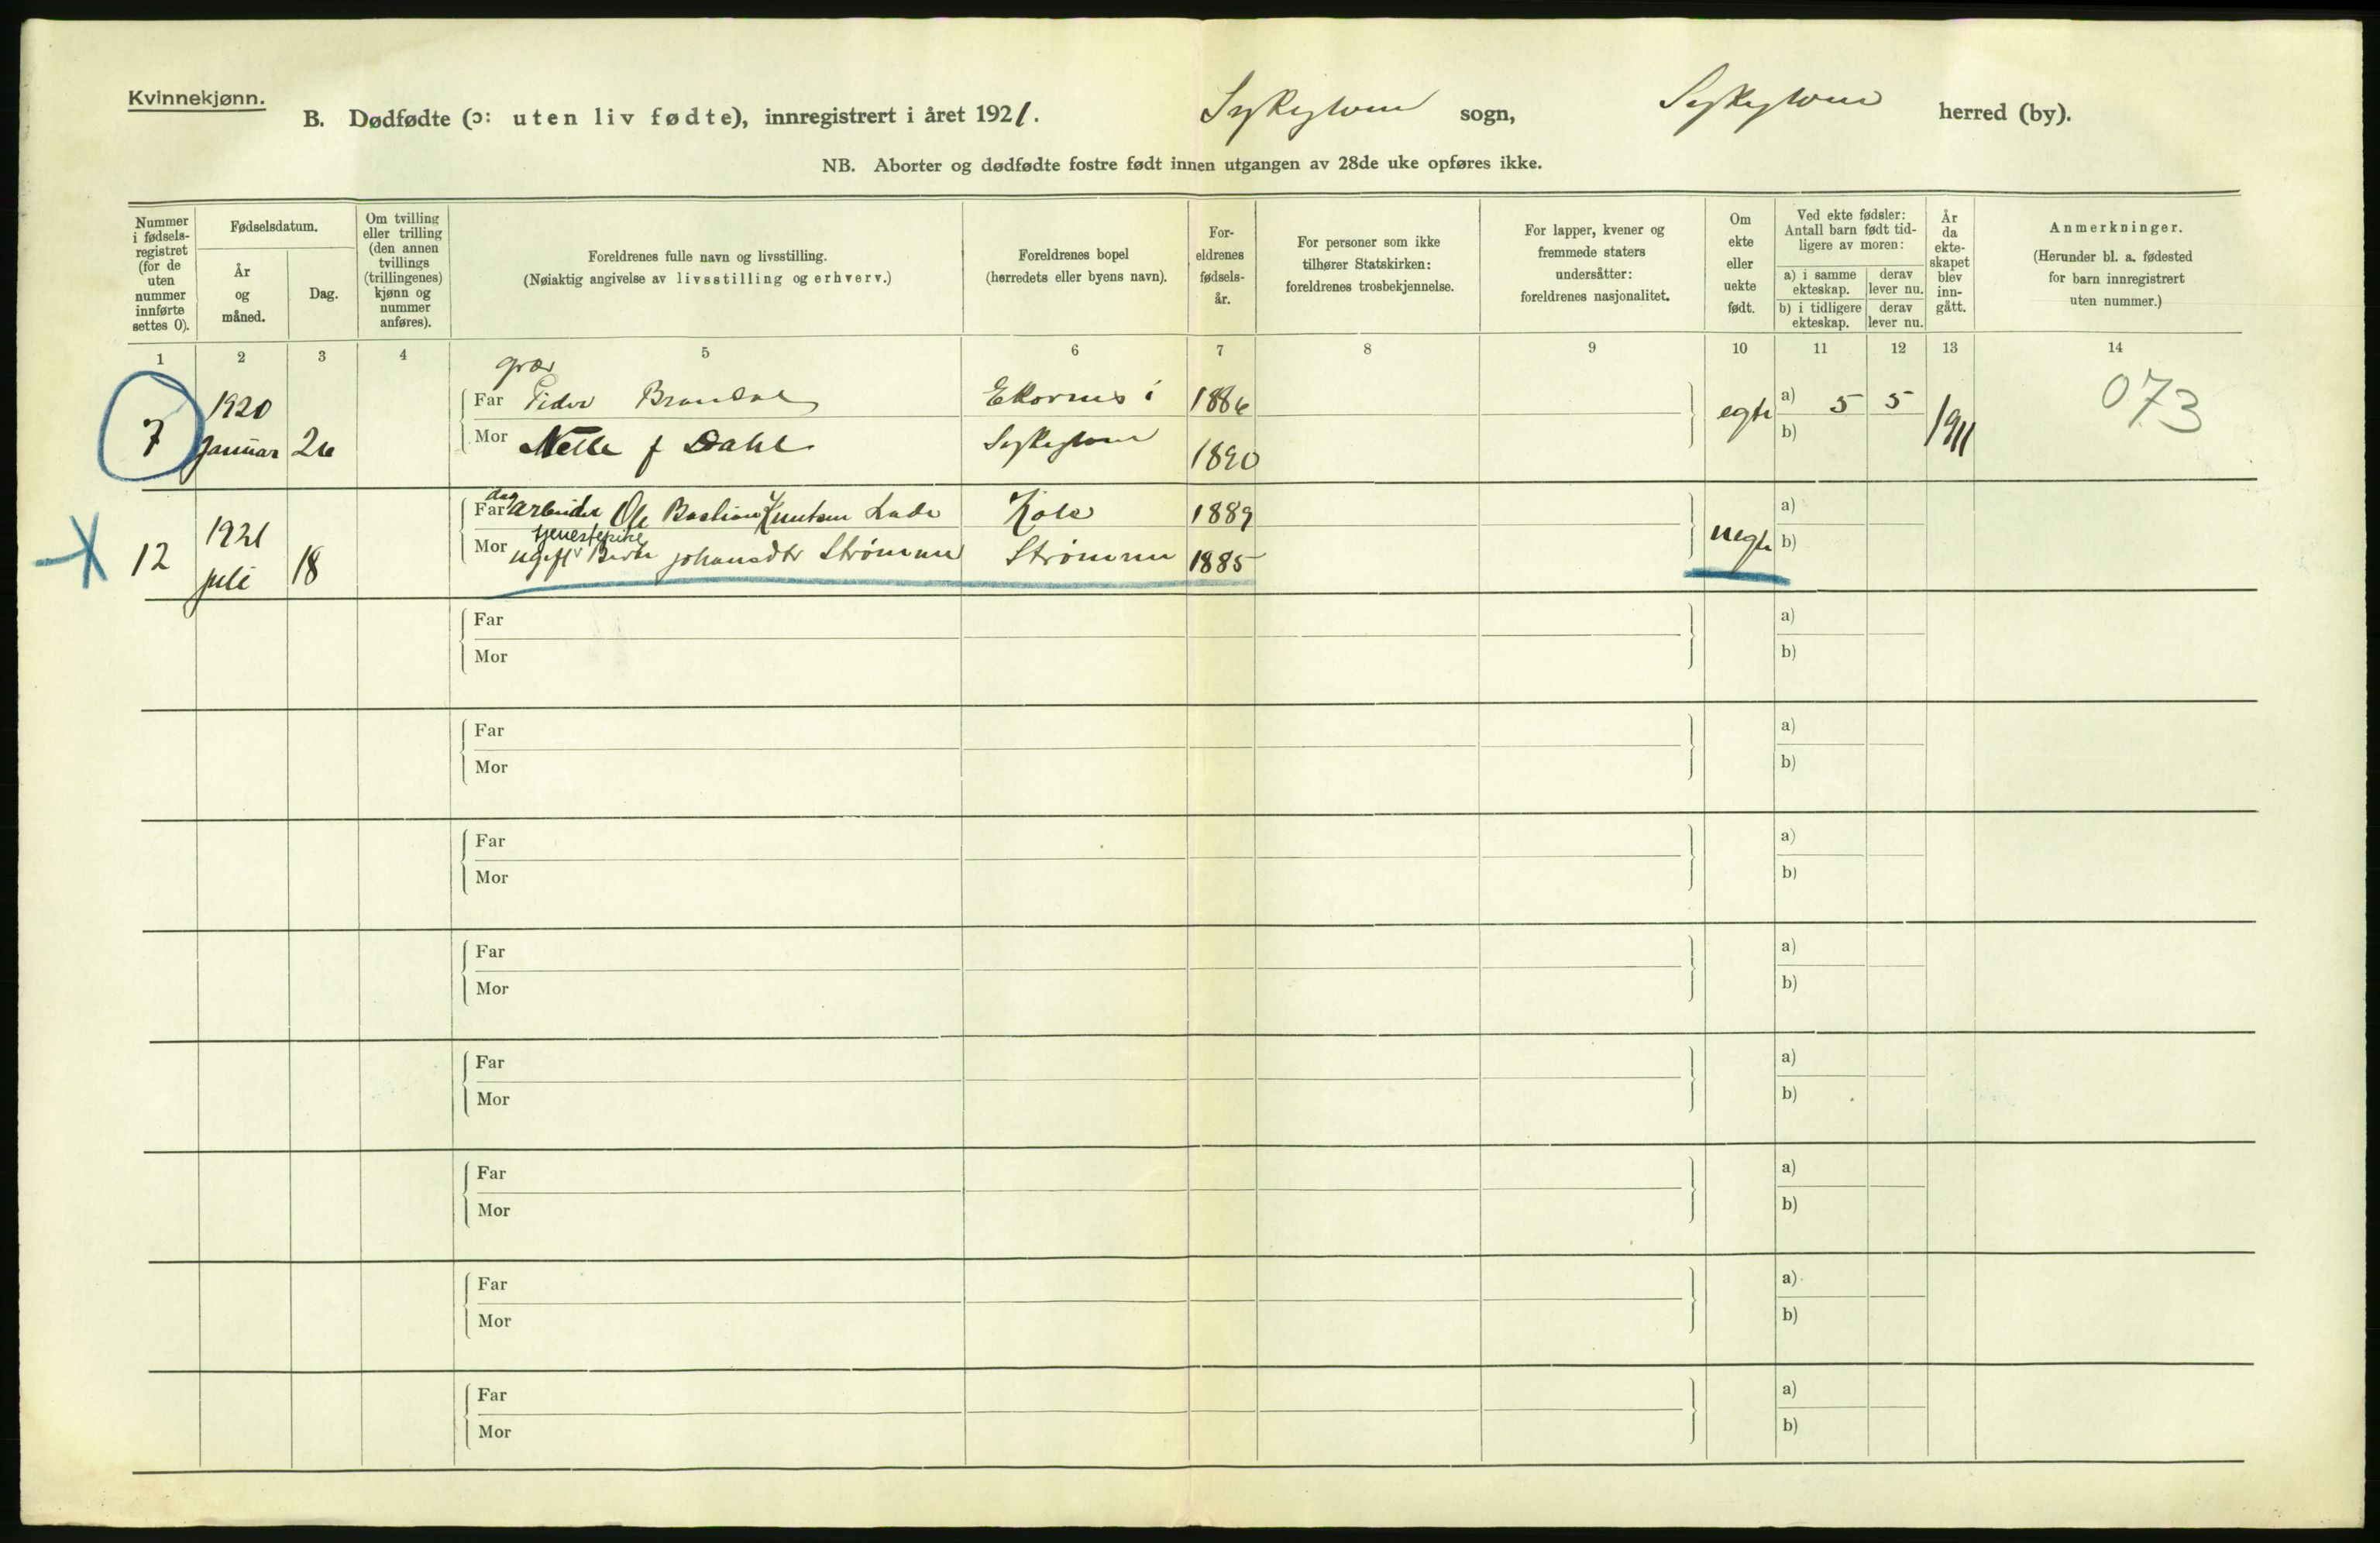 Kvinnekjønn.
B. Dødfødte (ɔ: uten liv fødte), innregistrert i året 1921. Sykylven sogn, Sykylven herred (by).
NB. Aborter og dødfødte fostre født innen utgangen av 28de uke opføres ikke.
Nummer i fødsels-registret (for de uten nummer innførte settes 0).
Fødselsdatum.
År og måned.
Dag.
Om tvilling eller trilling (den annen tvillings (trillingenes) kjønn og nummer anføres).
Foreldrenes fulle navn og livsstilling.
(Nøiaktig angivelse av livsstilling og erhverv.)
Foreldrenes bopel
(herredets eller byens navn).
For-eldrenes fødsels-år.
For personer som ikke tilhører Statskirken: foreldrenes trosbekjennelse.
For lapper, kvener og fremmede staters undersåtter: foreldrenes nasjonalitet.
Om ekte eller uekte født.
Ved ekte fødsler: Antall barn født tid-ligere av moren:
a) i samme ekteskap.
derav lever nu.
b) i tidligere ekteskap.
derav lever nu.
År da ekte-skapet blev inn-gått.
Anmerkninger.
(Herunder bl. a. fødested for barn innregistrert uten nummer.)
1 2 3 4 5 6 7 8 9 10 11 12 13 14
7 1920 januar 26
Far Peder Brandal Ekornes i 1886
Mor f Dahl Sykylven 1890
egte a) 5 5 b) 1911 073
12 1921 juli 18
Far dagarbeider Ole Bastian Knutsen Lade 1889
tjenestepike
Mor ugift johansdtr Strømme Strømme 1885
uegte a) b)
Far a)
Mor b)
Far a)
Mor b)
Far a)
Mor b)
Far a)
Mor b)
Far a)
Mor b)
Far a)
Mor b)
Far a)
Mor b)
Far a)
Mor b)